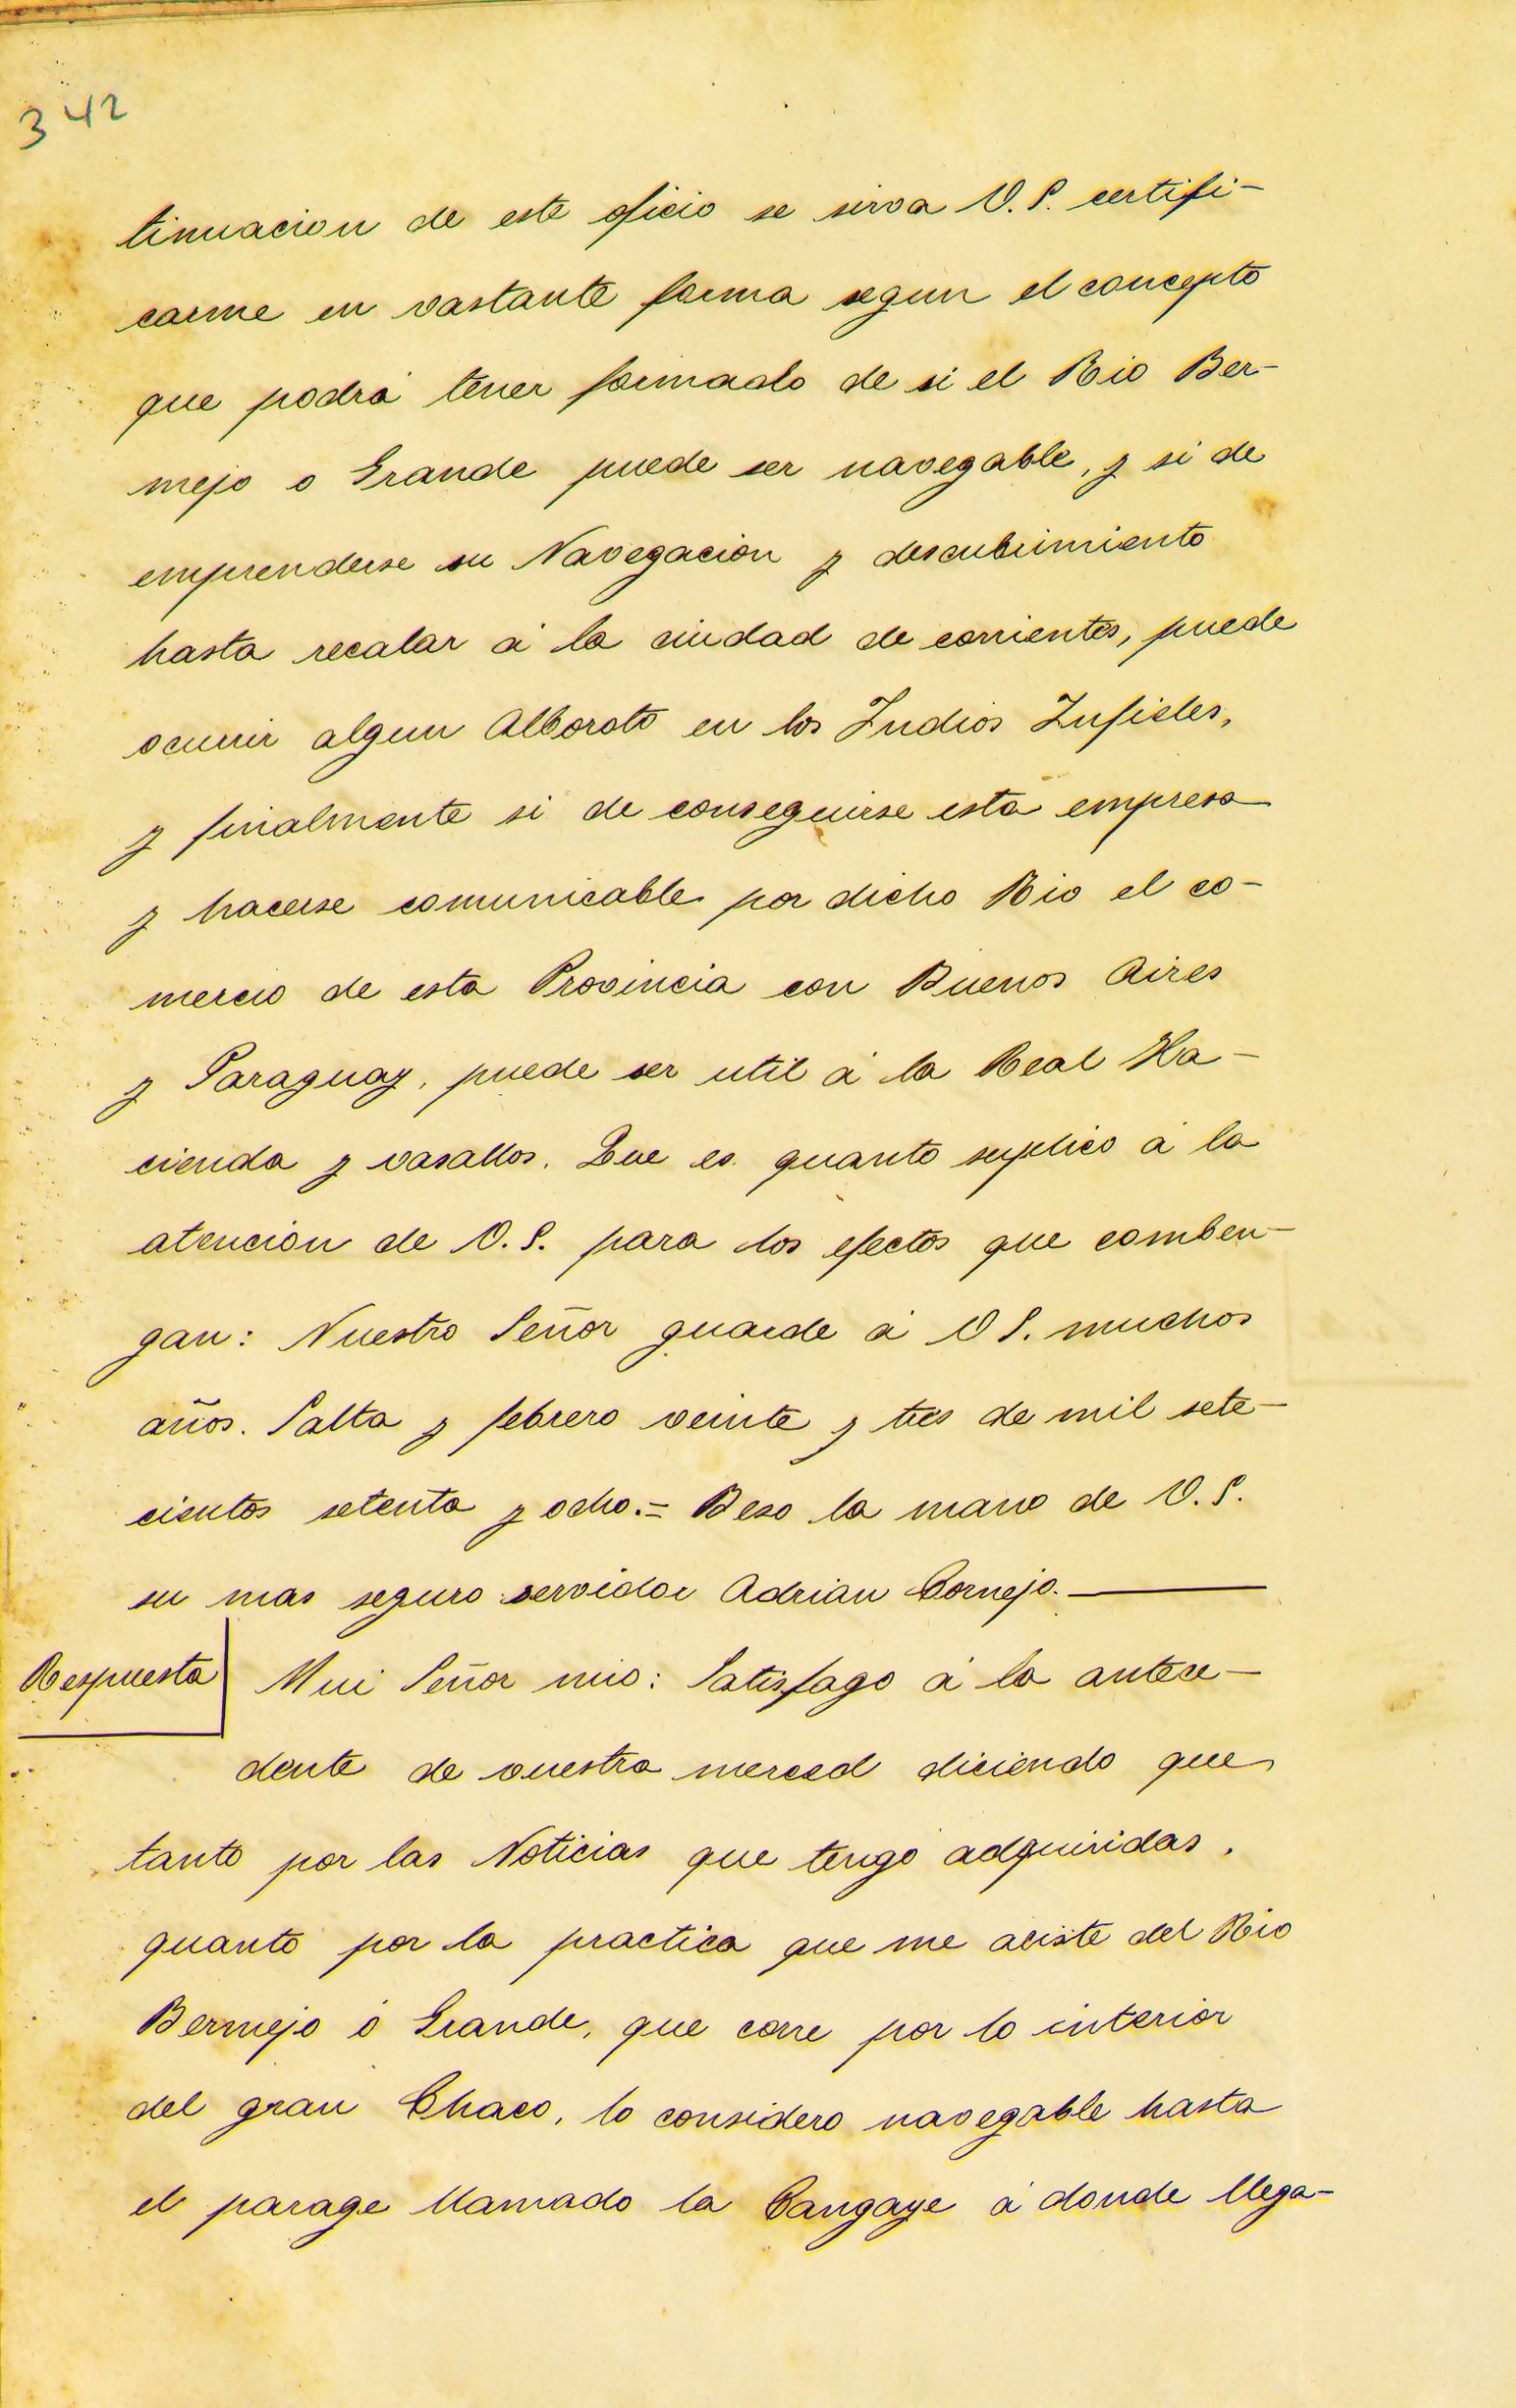 342
tinuacion de este oficio se sirva V. S. certifi-
carme en vastante forma segun el concepto
que podrá tener formado de si el Rio Ber-
mejo o Grande puede ser navegable, y si de
emprenderse su Navegacion y descubrimiento
hasta recalar á la ciudad de corrientes, puede
ocurrir algun Alboroto en los Indios Infieles,
y finalmente si de conseguirse esta empresa
y hacerse comunicable por dicho Rio el co-
mercio de esta Provincia con Buenos Aires
y Paraguay, puede ser util á la Real Ha-
cienda y vasallos. Que es quanto suplico á la
atencion de V. S. para los efectos que comben-
gan: Nuestro Señor guarde á V S. muchos
años. Salta y febrero veinte y tres de mil sete-
cientos setenta y ocho.= Beso la mano de V. S.
su mas seguro servidor Adrian Cornejo.
Respuesta Mui Señor mio: Satisfago á la antece-
dente de vuestra merced diciendo que
tanto por las Noticias que tengo adquiridas,
quanto por la practica que me aciste del Rio
Bermejo ó Grande, que corre por lo interior
del gran Chaco, lo considero navegable hasta
el parage llamado la Cangaye á donde llega-